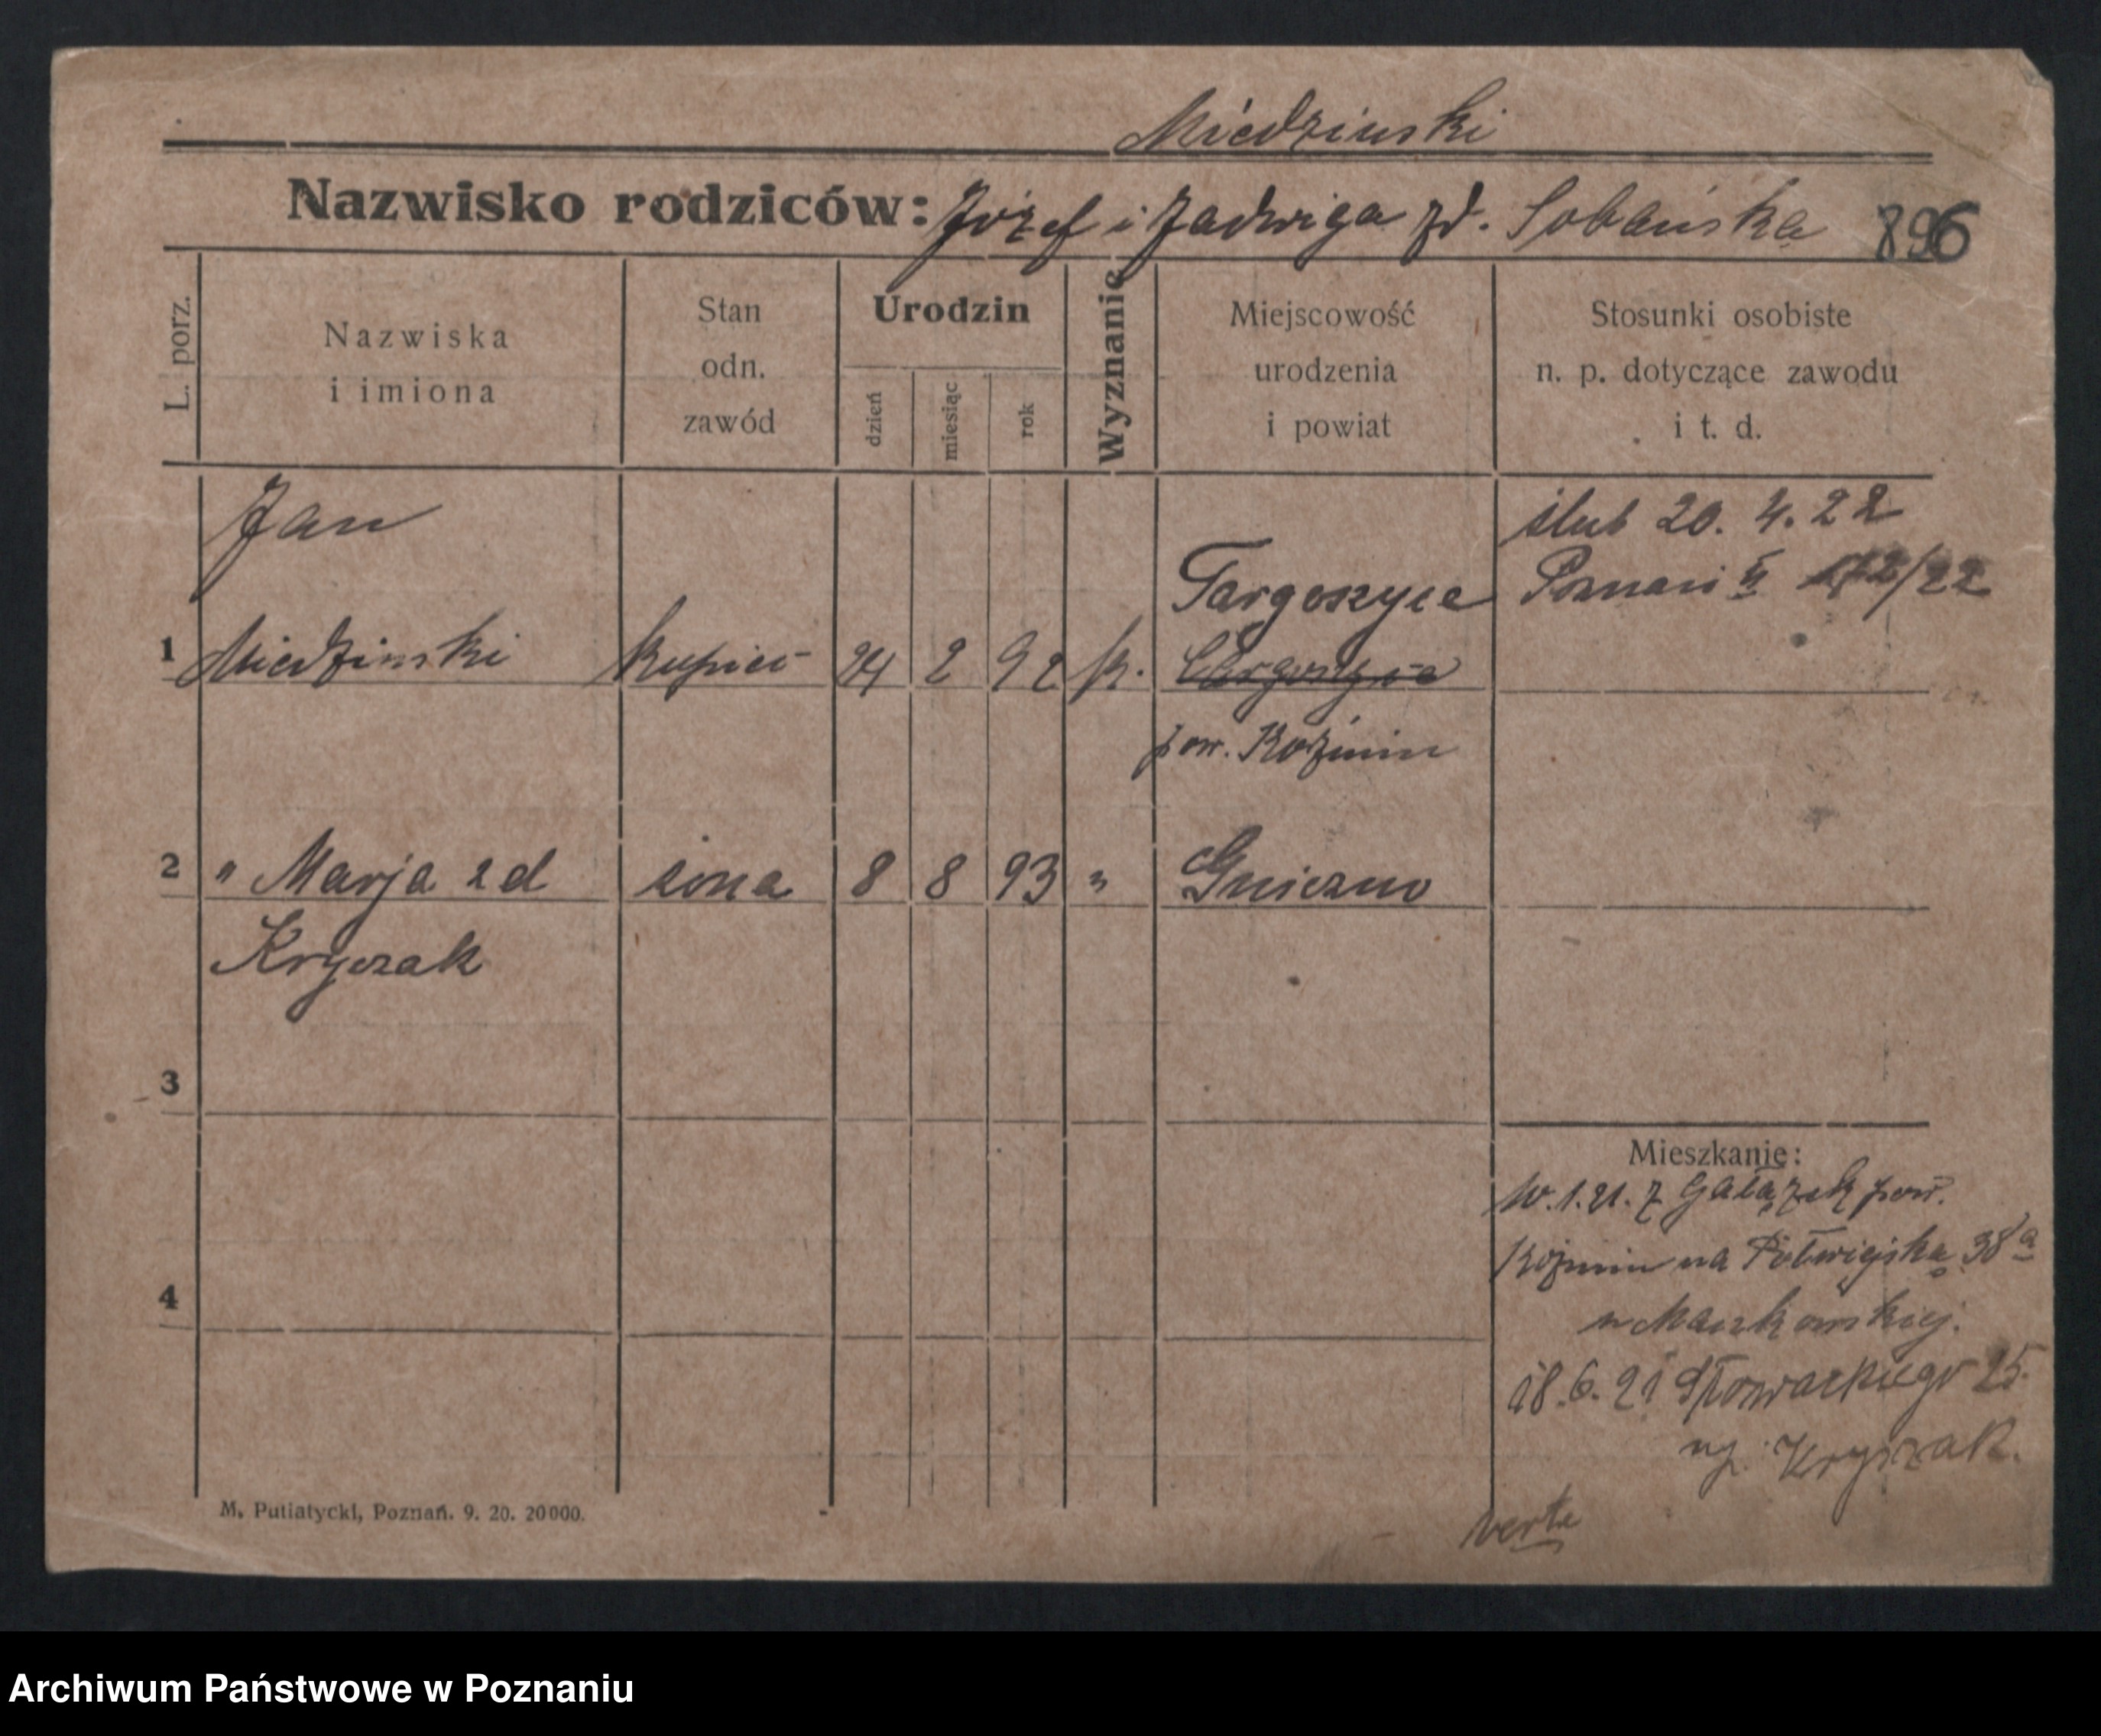 Miedzinski
Nazwisko rodziców: Józef i Jadwiga zd. Sobańska 896
L. porz.
Nazwiska
i imiona
Stan
odn.
zawód
Urodzin
dzień
miesiąc
rok
Wyznanie
Miejscowość
urodzenia
i powiat
Stosunki osobiste
n. p. dotyczące zawodu
i t. d.
Jan
1 Miedzinski kupiec 24 2 92 k.
Targoszyce
pow. Koźmin
ślub 20. 4. 22
Poznań II 172/22
2 " Marja zd żona 8 8 93 " Gniezno
Kryszak
3
4
Mieszkanie:
10.1.21. z Gałązek pow.
Koźmin na Półwiejską 38a
u Maukowskiej.
18.6.21 Słowackiego 25.
Kryszak.
verte
M. Putiatycki, Poznań. 9. 20. 20000.
Archiwum Państwowe w Poznaniu